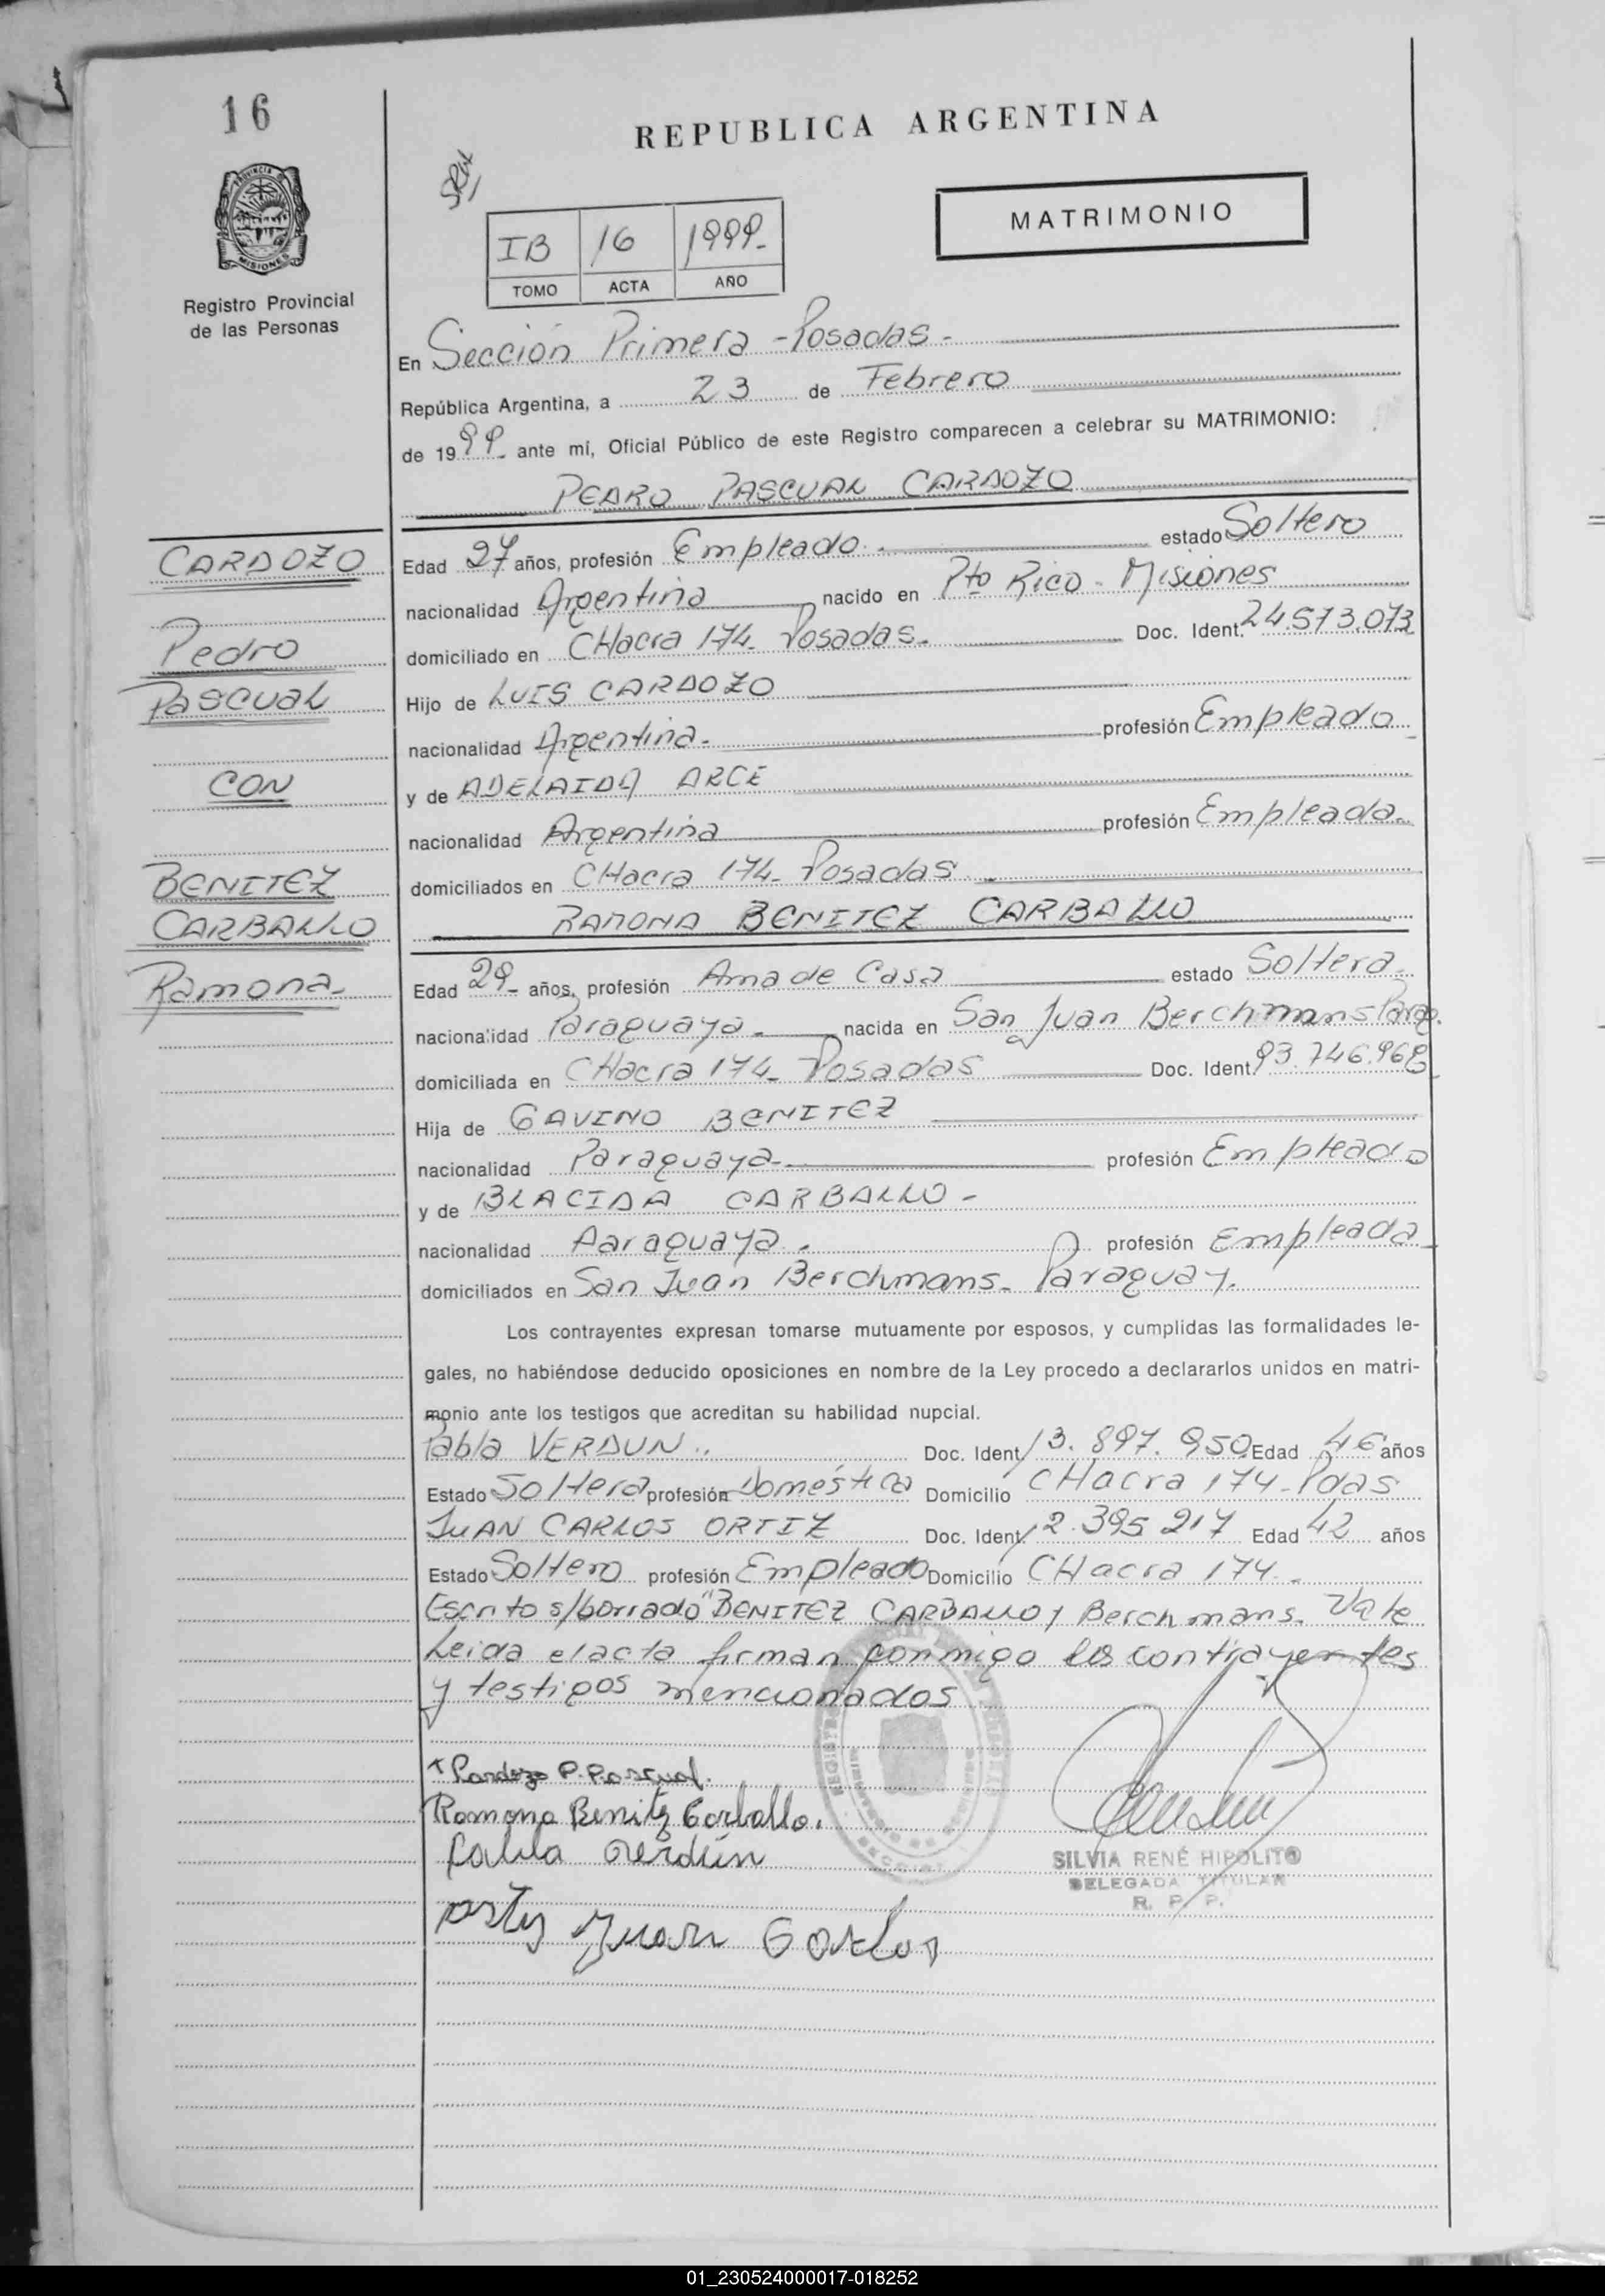 16
REPUBLICA ARGENTINA
MATRIMONIO
PROVINCIA DE
MISIONES
Registro Provincial
de las Personas
IB 16 1999-
TOMO ACTA AÑO
En Sección Primera - Posadas -
República Argentina, a 23 de Febrero
de 1999- ante mí, Oficial Público de este Registro comparecen a celebrar su MATRIMONIO:
PEDRO PASCUAL CARDOZO
CARDOZO
Pedro
PASCUAL
CON
BENITEZ
CARBALLO
Ramona-
Edad 27 años, profesión Empleado. estado Soltero
nacionalidad Argentina nacido en Pto Rico - Misiones
domiciliado en CHacra 174- Posadas- Doc. Ident. 24.573.073
Hijo de LUIS CARDOZO
nacionalidad Argentina- profesión Empleado
y de ADELAIDA ARCE
nacionalidad Argentina profesión Empleada-
domiciliados en CHacra 174- Posadas -
RAMONA BENITEZ CARBALLO
Edad 29- años, profesión Ama de Casa estado Soltera-
nacionalidad Paraguaya- nacida en San Juan Berchmans Parag.
domiciliada en CHacra 174- Posadas Doc. Ident. 93.746.968
Hija de GAVINO BENITEZ
nacionalidad Paraguaya- profesión Empleado
y de BLACIDA CARBALLO -
nacionalidad Paraguaya. profesión Empleada
domiciliados en San Juan Berchmans- Paraguay.
Los contrayentes expresan tomarse mutuamente por esposos, y cumplidas las formalidades le-
gales, no habiéndose deducido oposiciones en nombre de la Ley procedo a declararlos unidos en matri-
monio ante los testigos que acreditan su habilidad nupcial.
Pabla VERDUN.. Doc. Ident. 13.897.950 Edad 46 años
Estado Soltera profesión Doméstica Domicilio CHacra 174- Pdas
JUAN CARLOS ORTIZ Doc. Ident. 12.395 217 Edad 42 años
Estado Soltero profesión Empleado Domicilio CHacra 174-
Escrito s/borrado "BENITEZ CARBALLO y Berchmans. Vale
Leida el acta firman conmigo los contrayentes
y testigos mencionados
x Cardozo P. Pascual.
Ramona Benitez Carballo.
Pabla Verdún
Ortiz Juan Carlos
SILVIA RENÉ HIPOLITO
DELEGADA TITULAR
R. P. P.
01_230524000017-018252